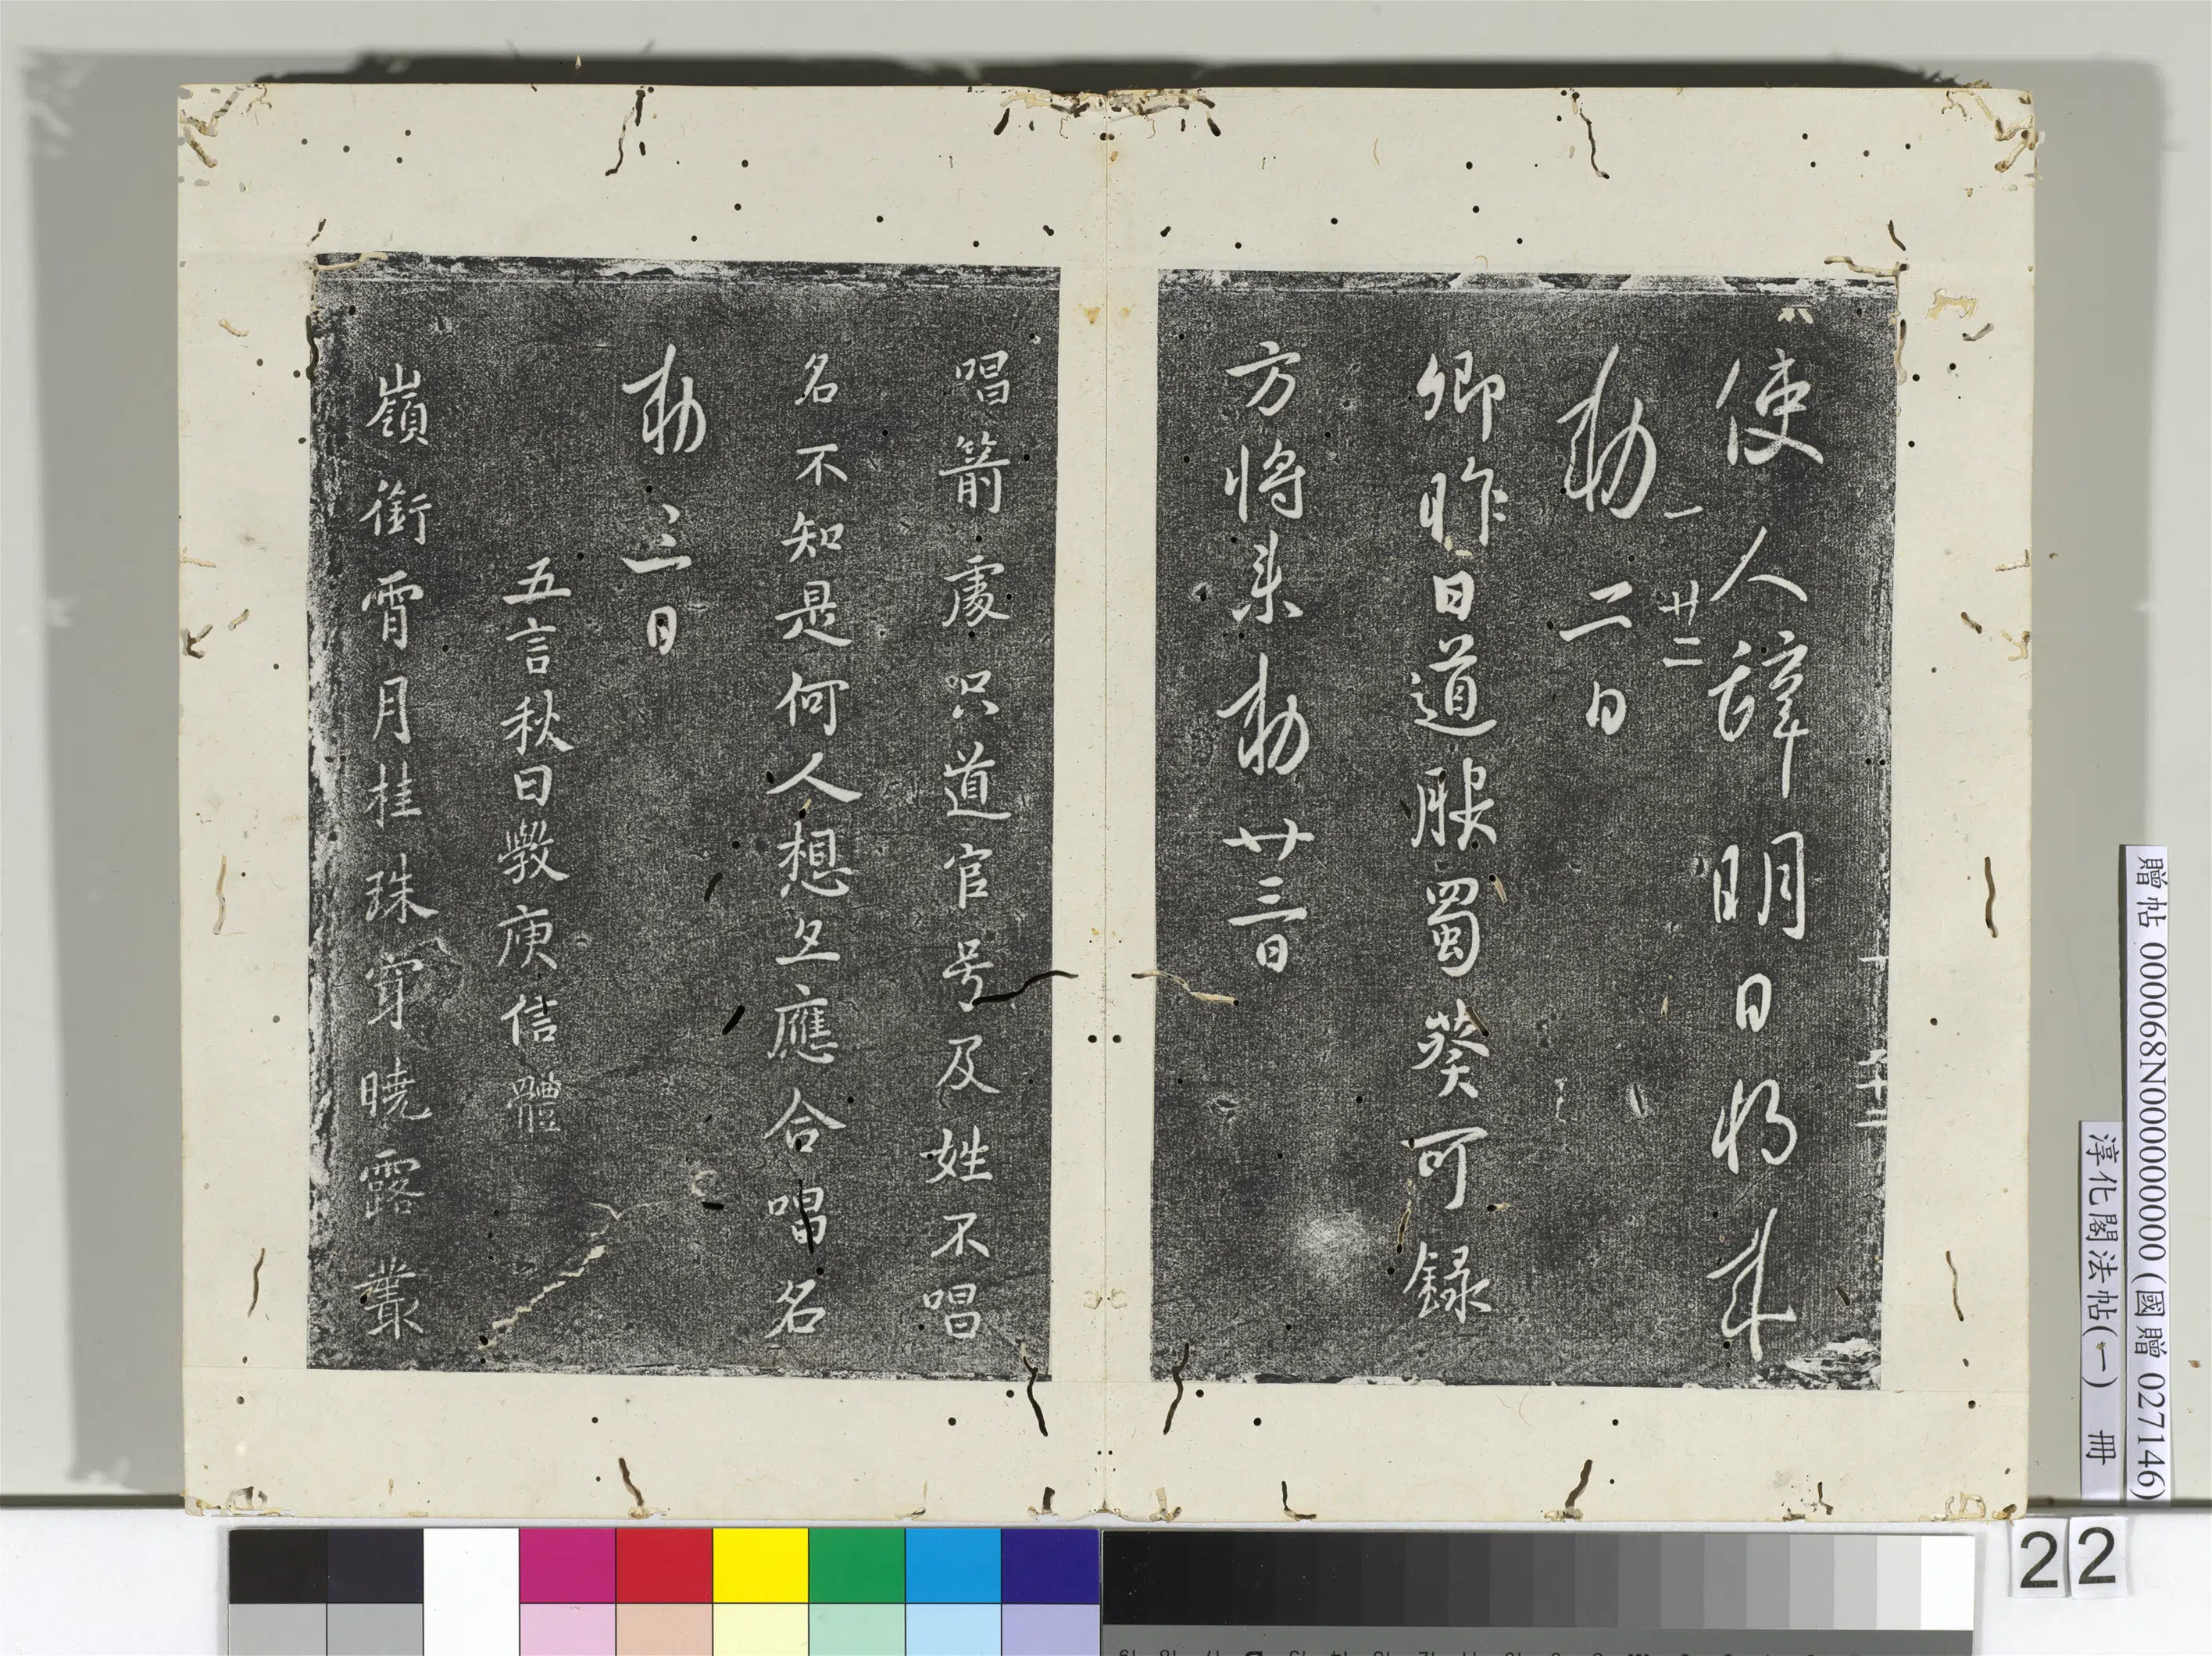 使人辞明日将来
一 廿二
勅二日
卿昨日道服蜀葵可録
方将来勅廿三日
唱箭處只道官号及姓不唱
名不知是何人想立應合唱名
勅三日
五言秋日斅庾信體
嶺銜霄月桂珠穿曉露叢
贈帖 000068N000000000(國贈 027146)
淳化閣法帖(一) 冊
22